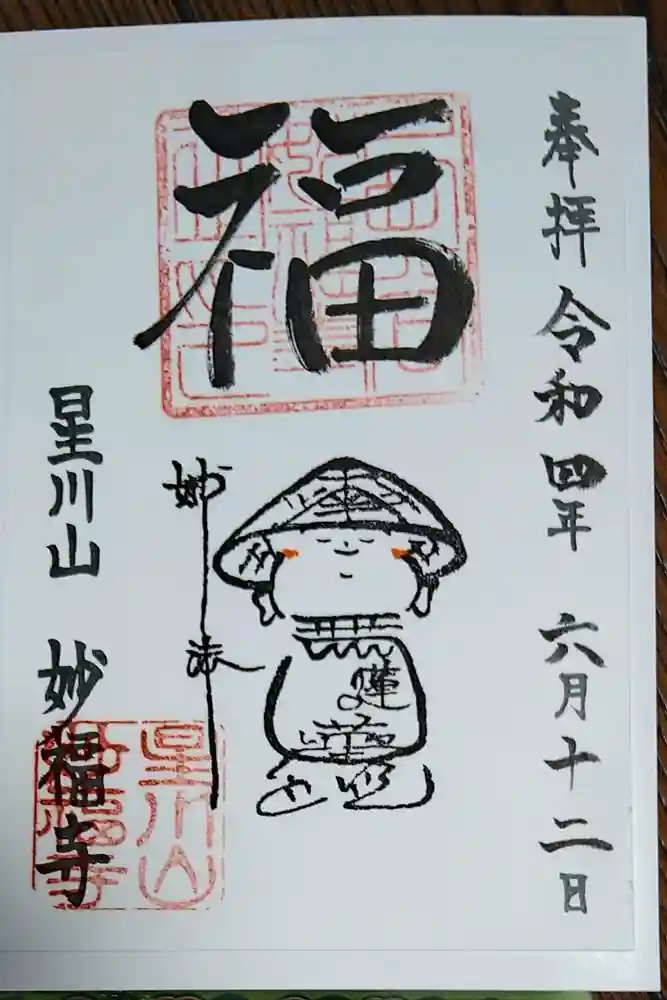 奉拝 令和四年 六月十二日
福
妙法
蓮
星川山 妙福寺
星川山